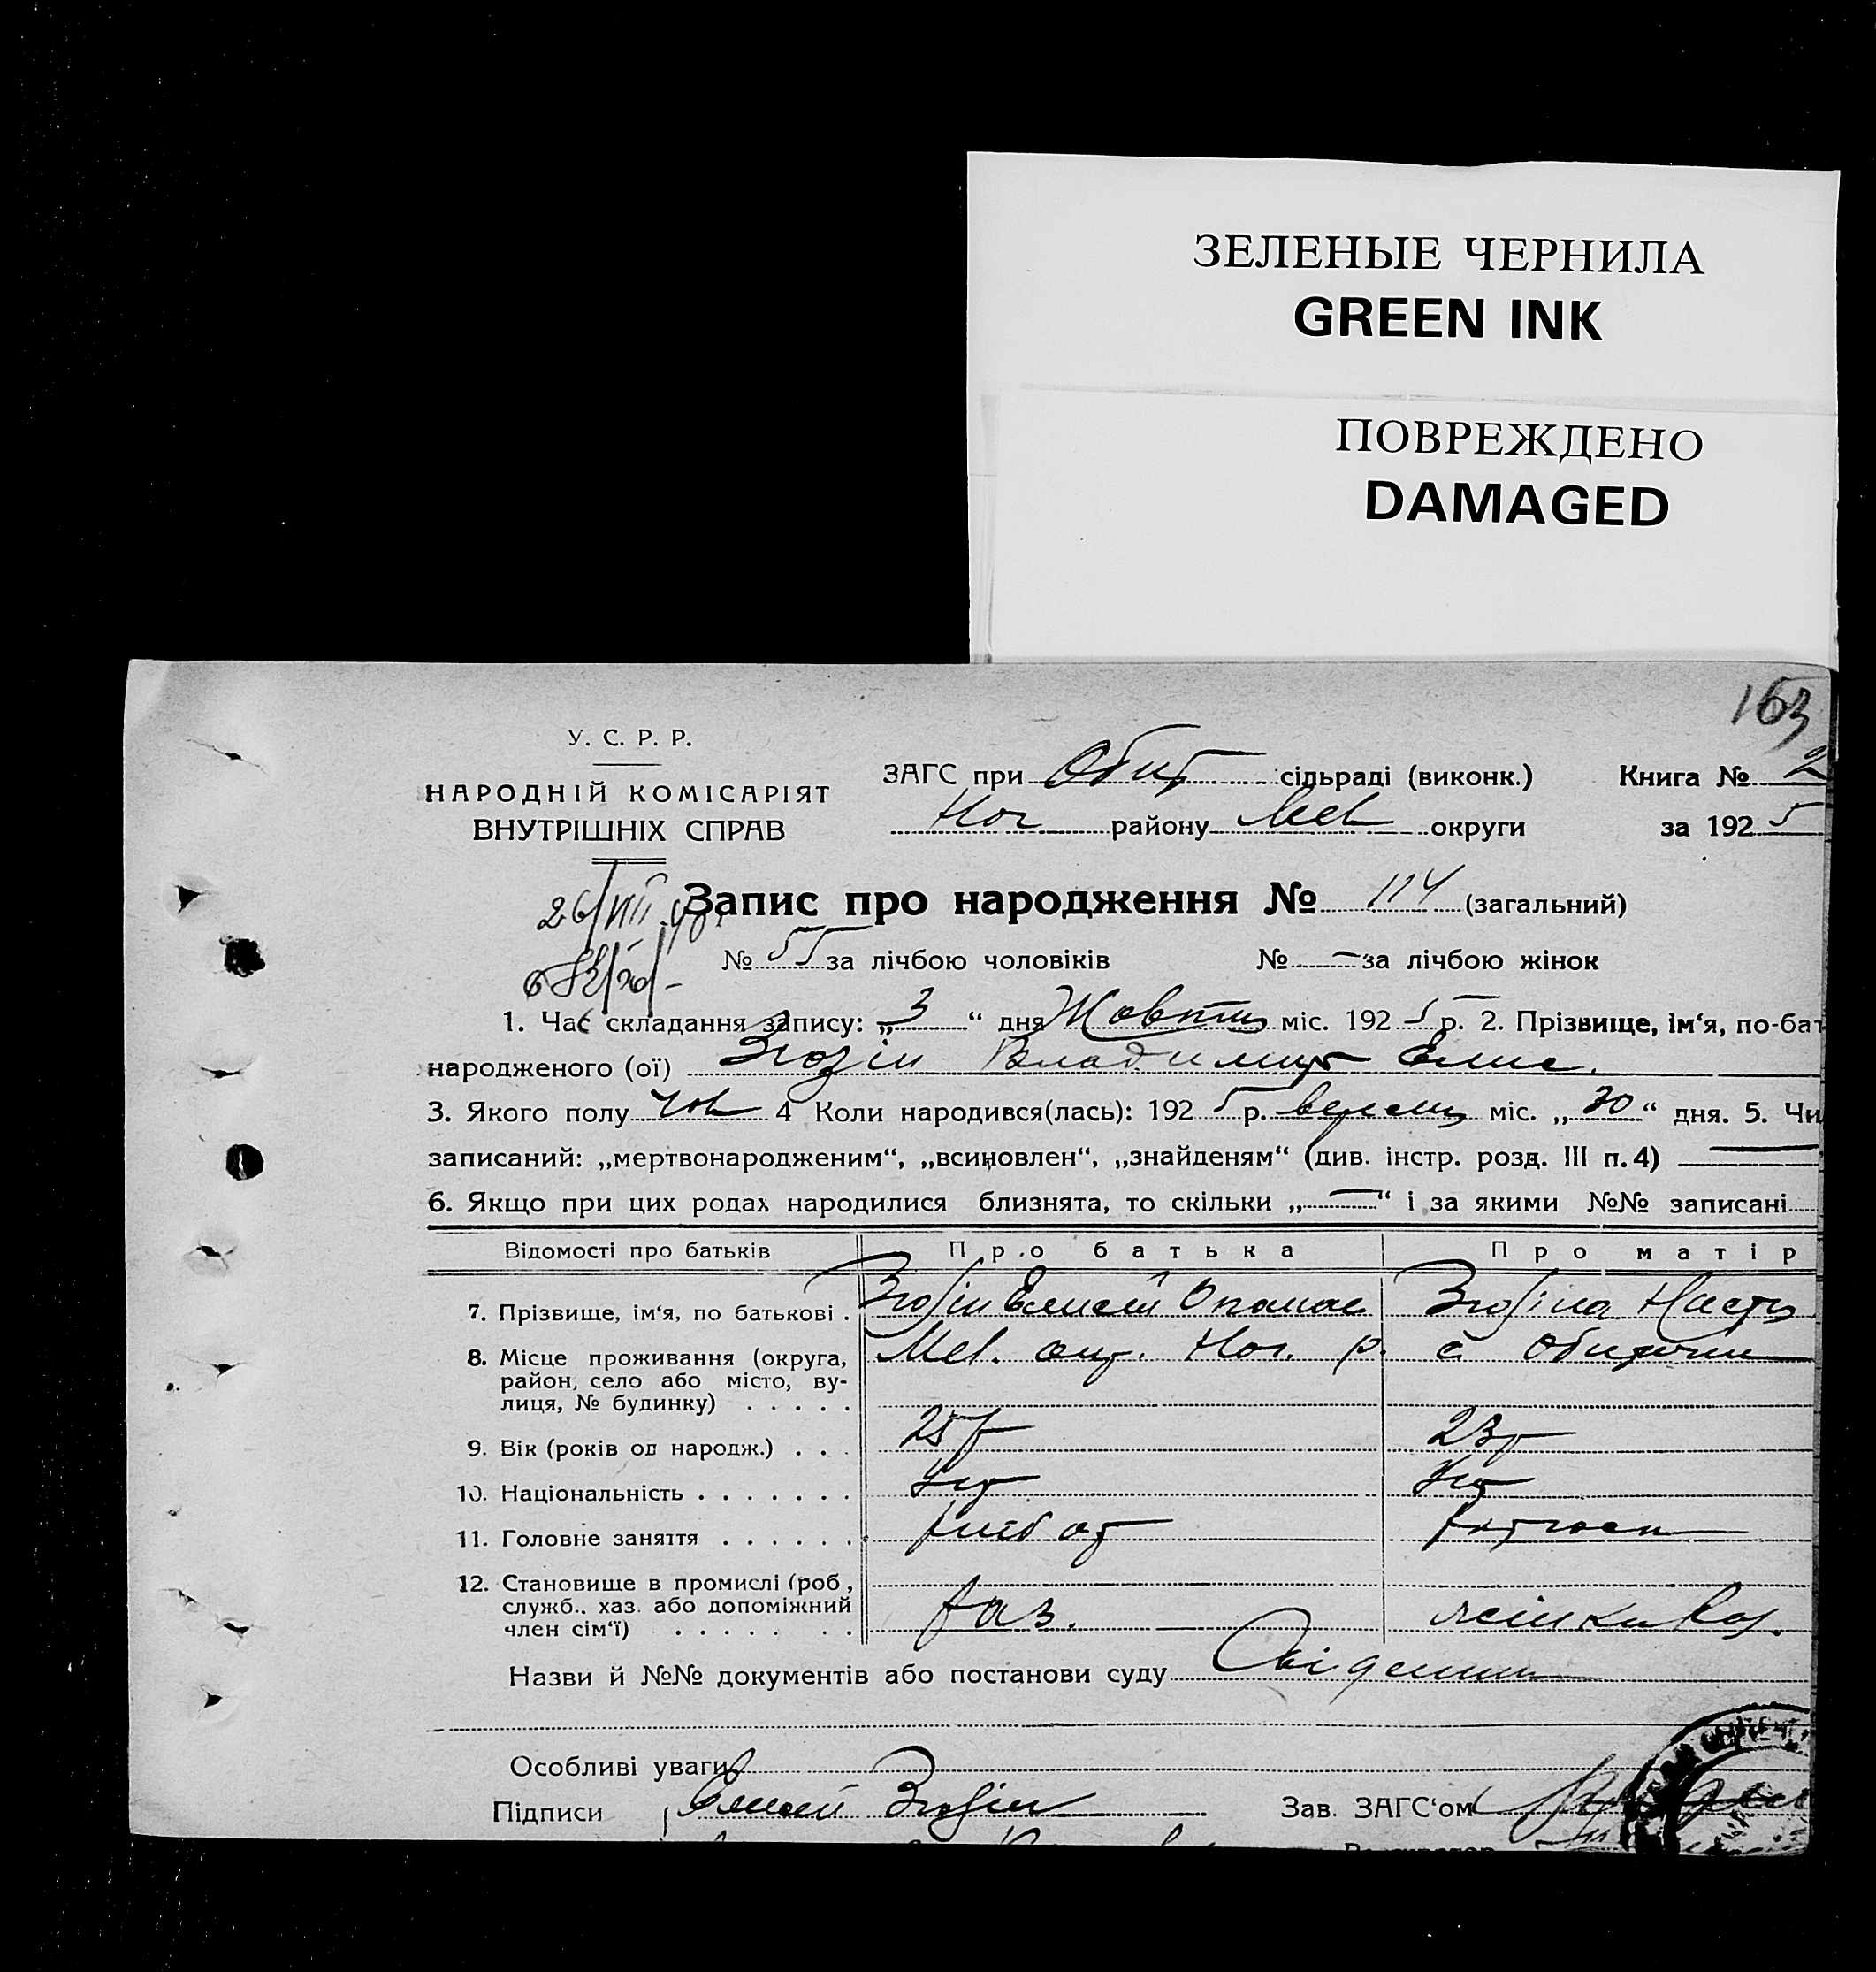 ЗЕЛЕНЫЕ ЧЕРНИЛА
GREEN INK
ПОВРЕЖДЕНО
DAMAGED
163
У. С. Р. Р.
НАРОДНІЙ КОМІСАРІЯТ
ВНУТРІШНІХ СПРАВ
ЗАГС при Обит сільраді (виконк.) Книга № 2
Ног району Мел округи за 1925
Запис про народження № 114 (загальний)
26/VIII
№ 55 за лічбою чоловіків № — за лічбою жінок
1. Час складання запису: „3“ дня Жовтня міс. 1925 р. 2. Прізвище, ім‘я, по-бат
народженого (ої) Владимир Елис.
3. Якого полу чол 4 Коли народився(лась): 1925 р. вересня міс. „30“ дня. 5. Чи
записаний: „мертвонародженим“, „всиновлен“, „знайденям“ (див. інстр. розд. III п. 4) —
6. Якщо при цих родах народилися близнята, то скільки „—“ і за якими №№ записані
Відомості про батьків Про батька Про матір
7. Прізвище, ім‘я, по батькові . Елисей Опанас Наст
8. Місце проживання (округа, Мел. окр. Ног. р. с. Обиточни
район, село або місто, ву-
лиця, № будинку) . . . . .
9. Вік (років од народж.) . . . 25 р 23 р
10. Національність . . . . . . . Укр Укр
11. Головне заняття . . . . . . хлібор
12. Становище в промислі (роб., хаз.
служб., хаз. або допоміжний
член сім‘ї) . . . . . . .
Назви й №№ документів або постанови суду
Особливі уваги
Підписи Елисей Зав. ЗАГС‘ом